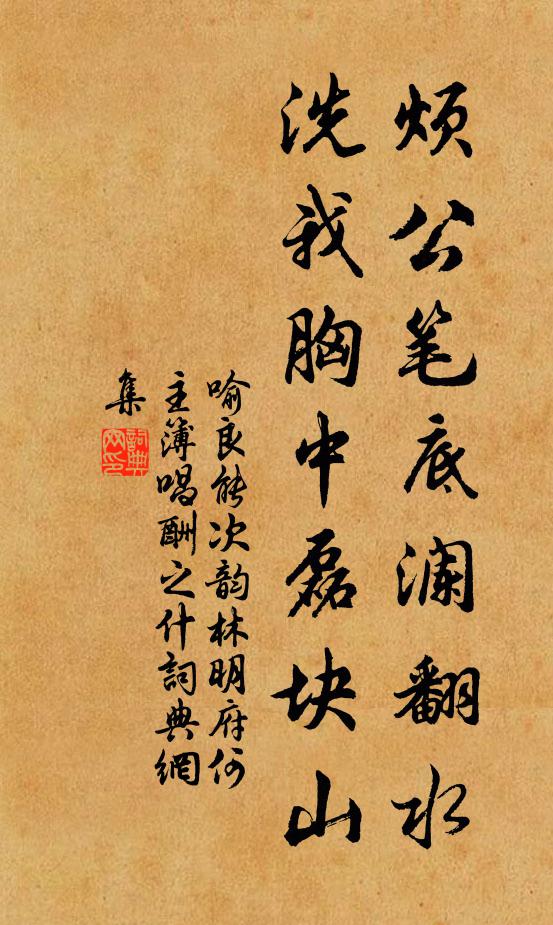 烦公笔底澜翻水
洗我胸中磊块山
喻良能次韵林明府何
主簿唱酬之什词典網
集
詞典網印